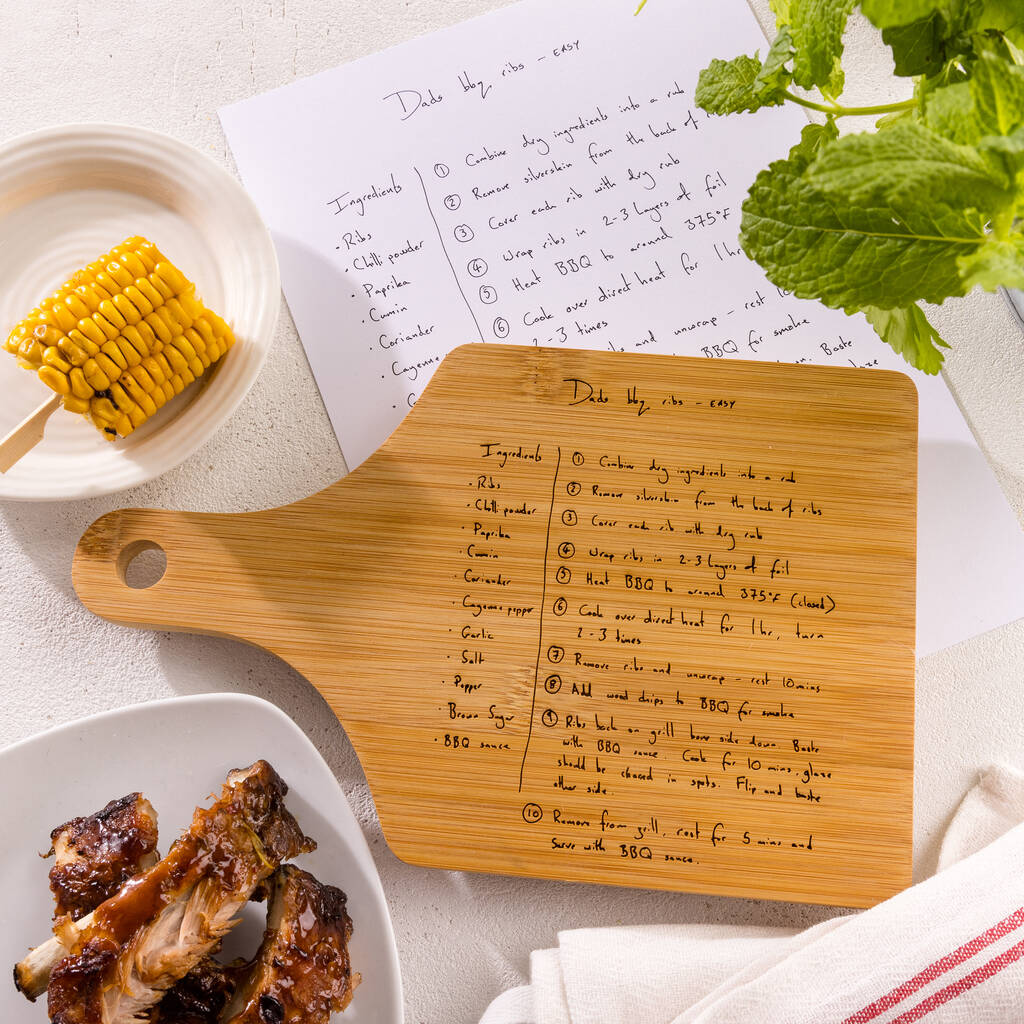 Dads bbq ribs - EASY
Ingredients
• Ribs
• Chilli powder
• Paprika
• Cumin
• Coriander
• Cayenne
• G
① Combine dry ingredients into a rub
② Remove silverskin from the back of
③ Cover each rib with dry rub
④ Wrap ribs in 2-3 layers of foil
⑤ Heat BBQ to around 375°F
⑥ Cook over direct heat for 1hr
2-3 times
and unwrap - rest 10
BBQ for smoke
Baste
glaze
Dads bbq ribs - EASY
Ingredients
• Ribs
• Chilli powder
• Paprika
• Cumin
• Coriander
• Cayenne pepper
• Garlic
• Salt
• Pepper
• Brown Sugar
• BBQ sauce
① Combine dry ingredients into a rub
② Remove silverskin from the back of ribs
③ Cover each rib with dry rub
④ Wrap ribs in 2-3 layers of foil
⑤ Heat BBQ to around 375°F (closed)
⑥ Cook over direct heat for 1hr, turn
2-3 times
⑦ Remove ribs and unwrap - rest 10mins
⑧ Add wood chips to BBQ for smoke
⑨ Ribs back on grill bone side down. Baste
with BBQ sauce. Cook for 10 mins, glaze
should be charred in spots. Flip and baste
other side.
⑩ Remove from grill, rest for 5 mins and
Serve with BBQ sauce.